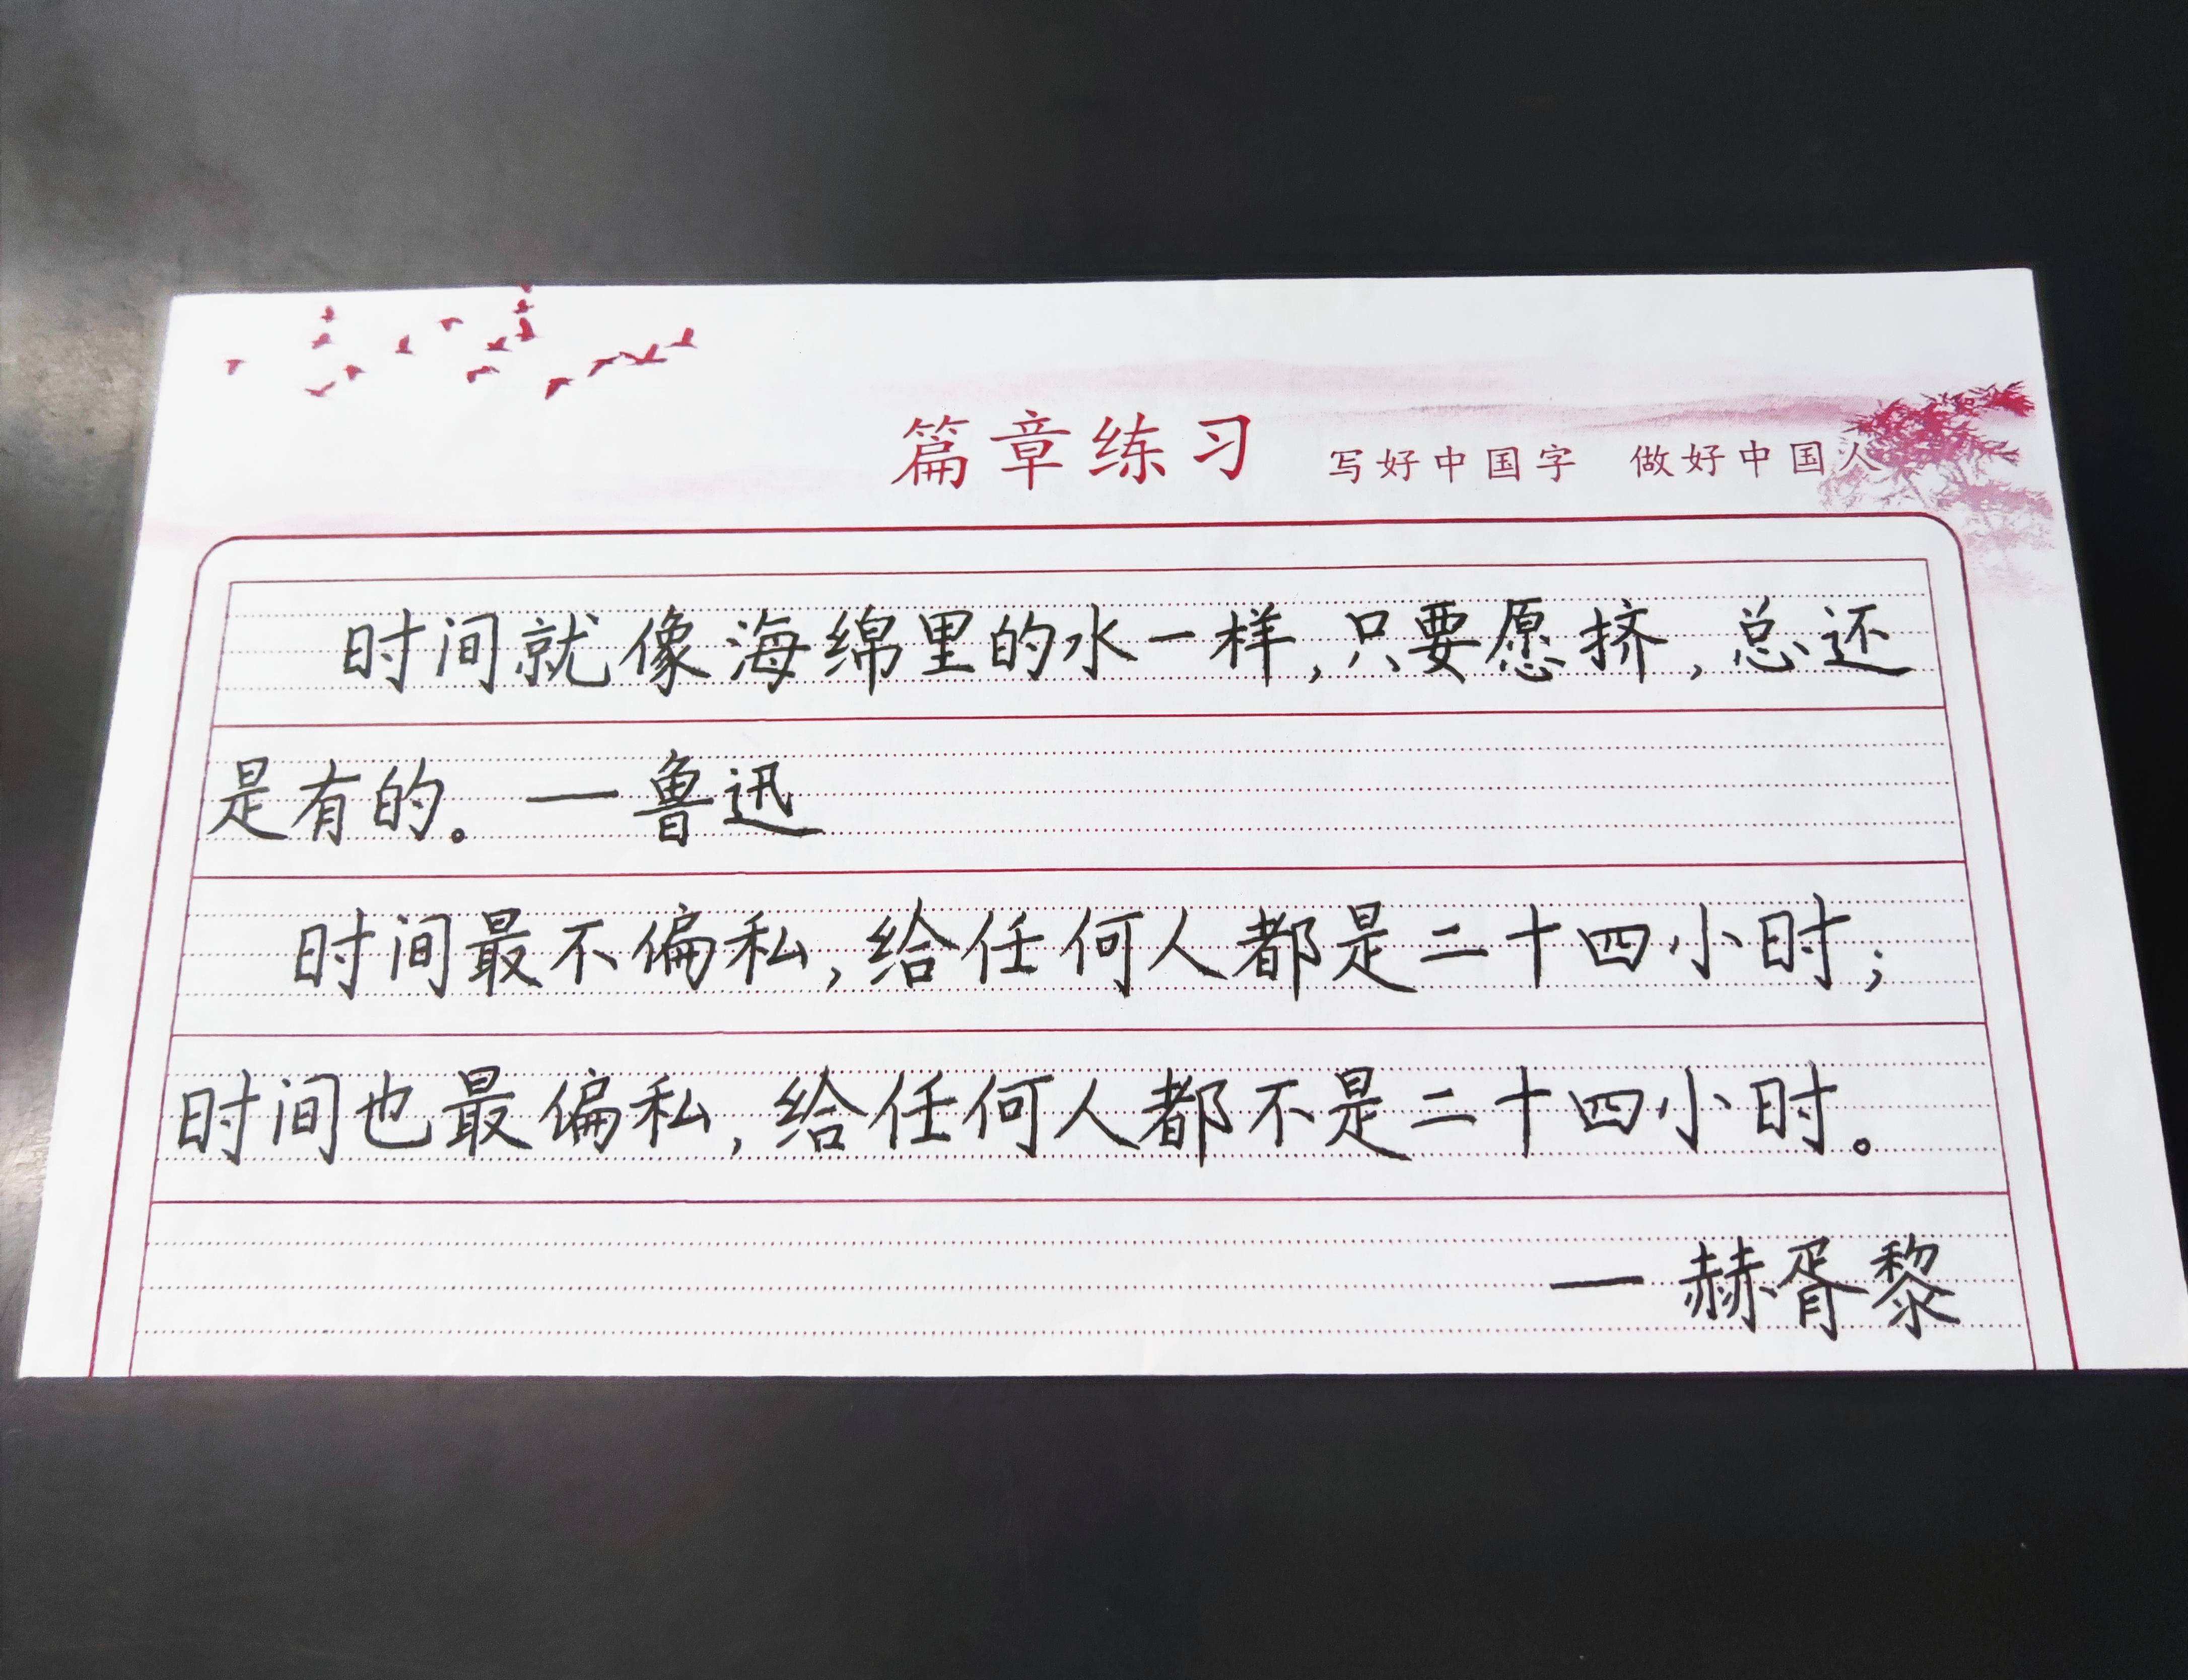 篇章练习 写好中国字 做好中国人
时间就像海绵里的水一样,只要愿挤,总还
是有的。—鲁迅
时间最不偏私,给任何人都是二十四小时;
时间也最偏私,给任何人都不是二十四小时。
—赫胥黎